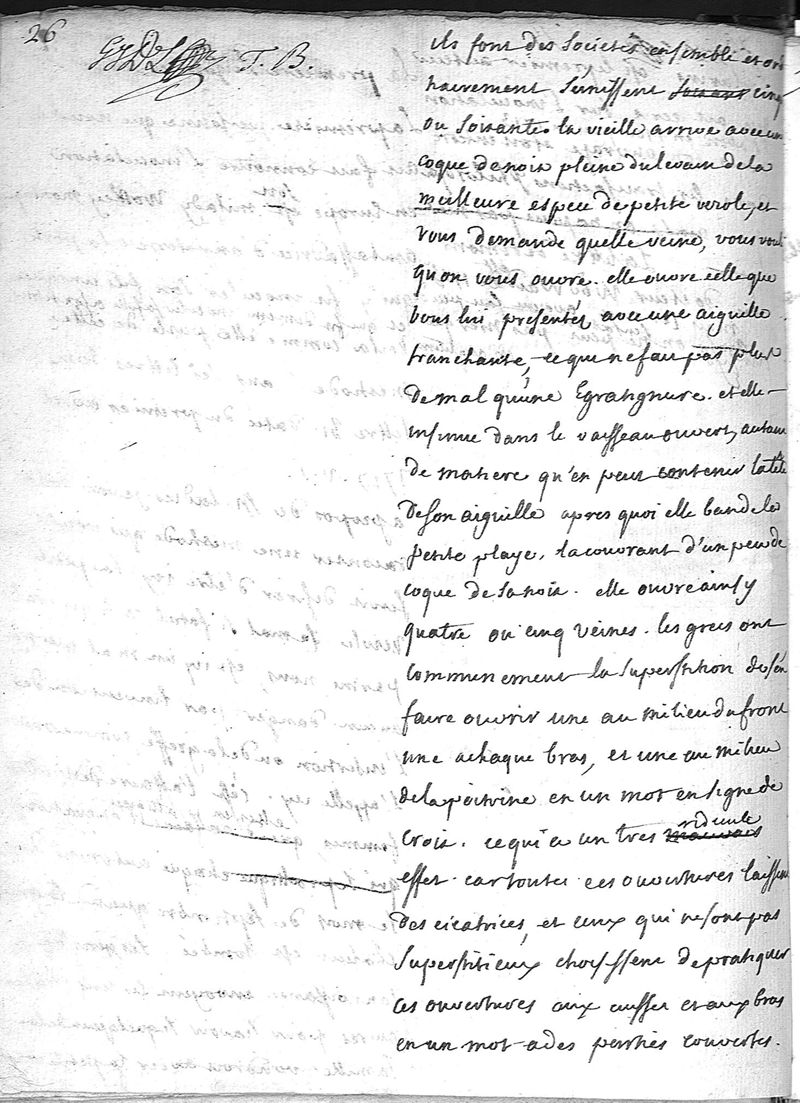 26
T. B.
ils font des societés ensemble et ordi
nairement sunissent soisant cinq
ou soixante. la vieille arrive avec un
coque de noix pleine du levain de la
meilleure espece de petite verole, et
vous demande quelle veine, vous voul
qu'on vous ouvre. elle ouvre celle que
vous lui presentés avec une aiguille
tranchante, ce qui ne fau pas plus
de mal qu'une Egratignure. et elle
insinue dans le vaisseau ouvert, autant
de matiere qu'en peut contenir la tête
de son aiguille apres quoi elle bande la
petite playe, la couvrant d'un peu de
coque de sa noix. elle ouvre ainsy
quatre ou cinq veines. les grecs ont
communement la superstition de s'en
faire ouvrir une au milieu du front
une a chaque bras, et une au milieu
de la poitrine en un mot en signe de
croix. ce qui a un tres mauvais ridicule
effet. car toutes ces ouvertures laissent
des cicatrices, et ceux qui ne sont pas
superstitieux choysssent de pratiquer
ces ouvertures aux cuisses et aux bras
en un mot a des parties couvertes.